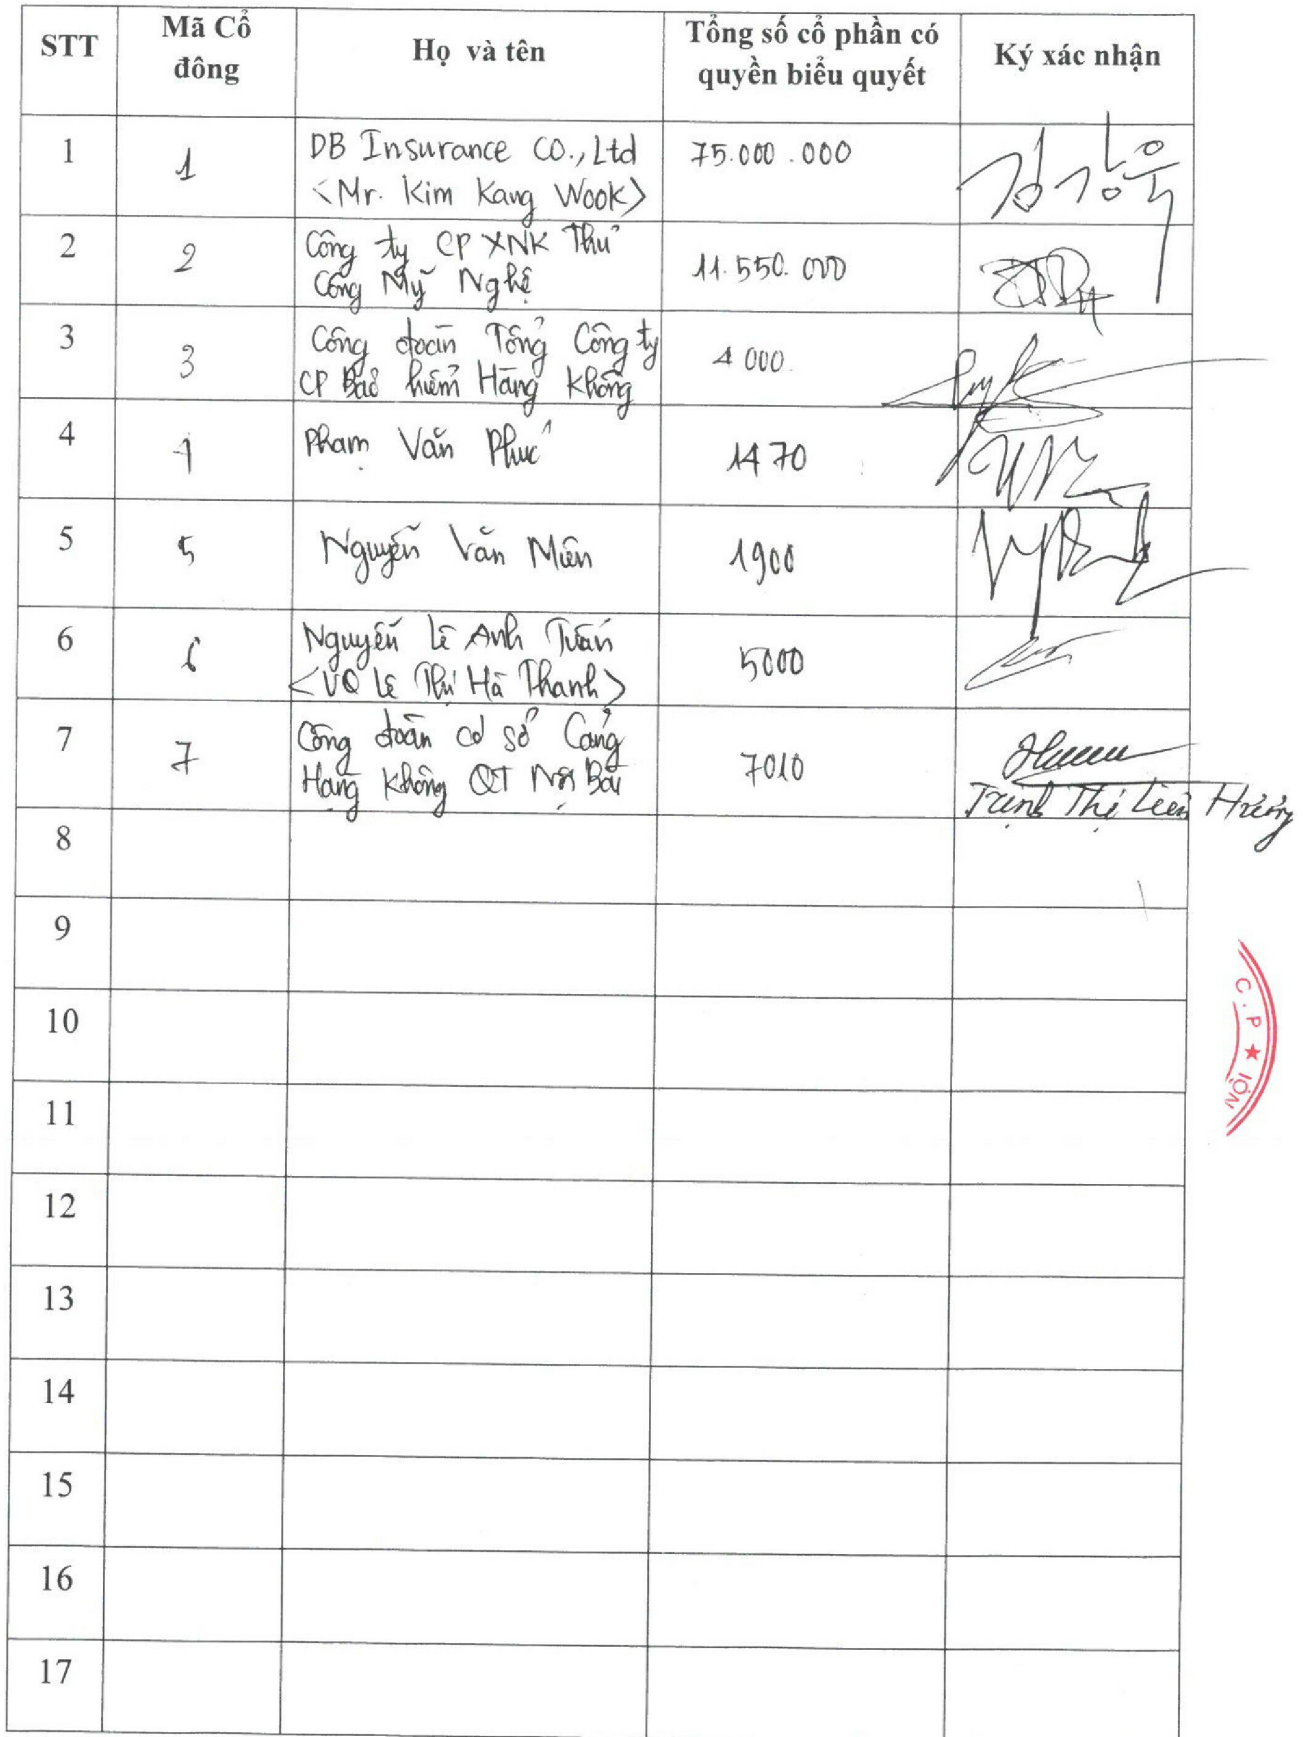 STT
Mã Cổ
đông
Họ và tên
Tổng số cổ phần có
quyền biểu quyết
Ký xác nhận
1
1
DB Insurance CO., Ltd
<Mr. Kim Kang Wook>
75.000.000
김강욱
2
2
Công ty CP XNK Thủ
Công Mỹ Nghệ
11.550.000
3
3
Công đoàn Tổng Công ty
CP Bảo hiểm Hàng Không
4 000
4
4
Phạm Văn Phúc
1470
5
5
Nguyễn Văn Miên
1900
6
6
Nguyễn Lê Anh Tuấn
<VQ Lê Thị Hà Thanh>
5000
7
7
Công đoàn cơ sở Cảng
Hàng Không QT Nội Bài
7010
Trịnh Thị Liên Hương
8
9
10
11
12
13
14
15
16
17
C.P ★